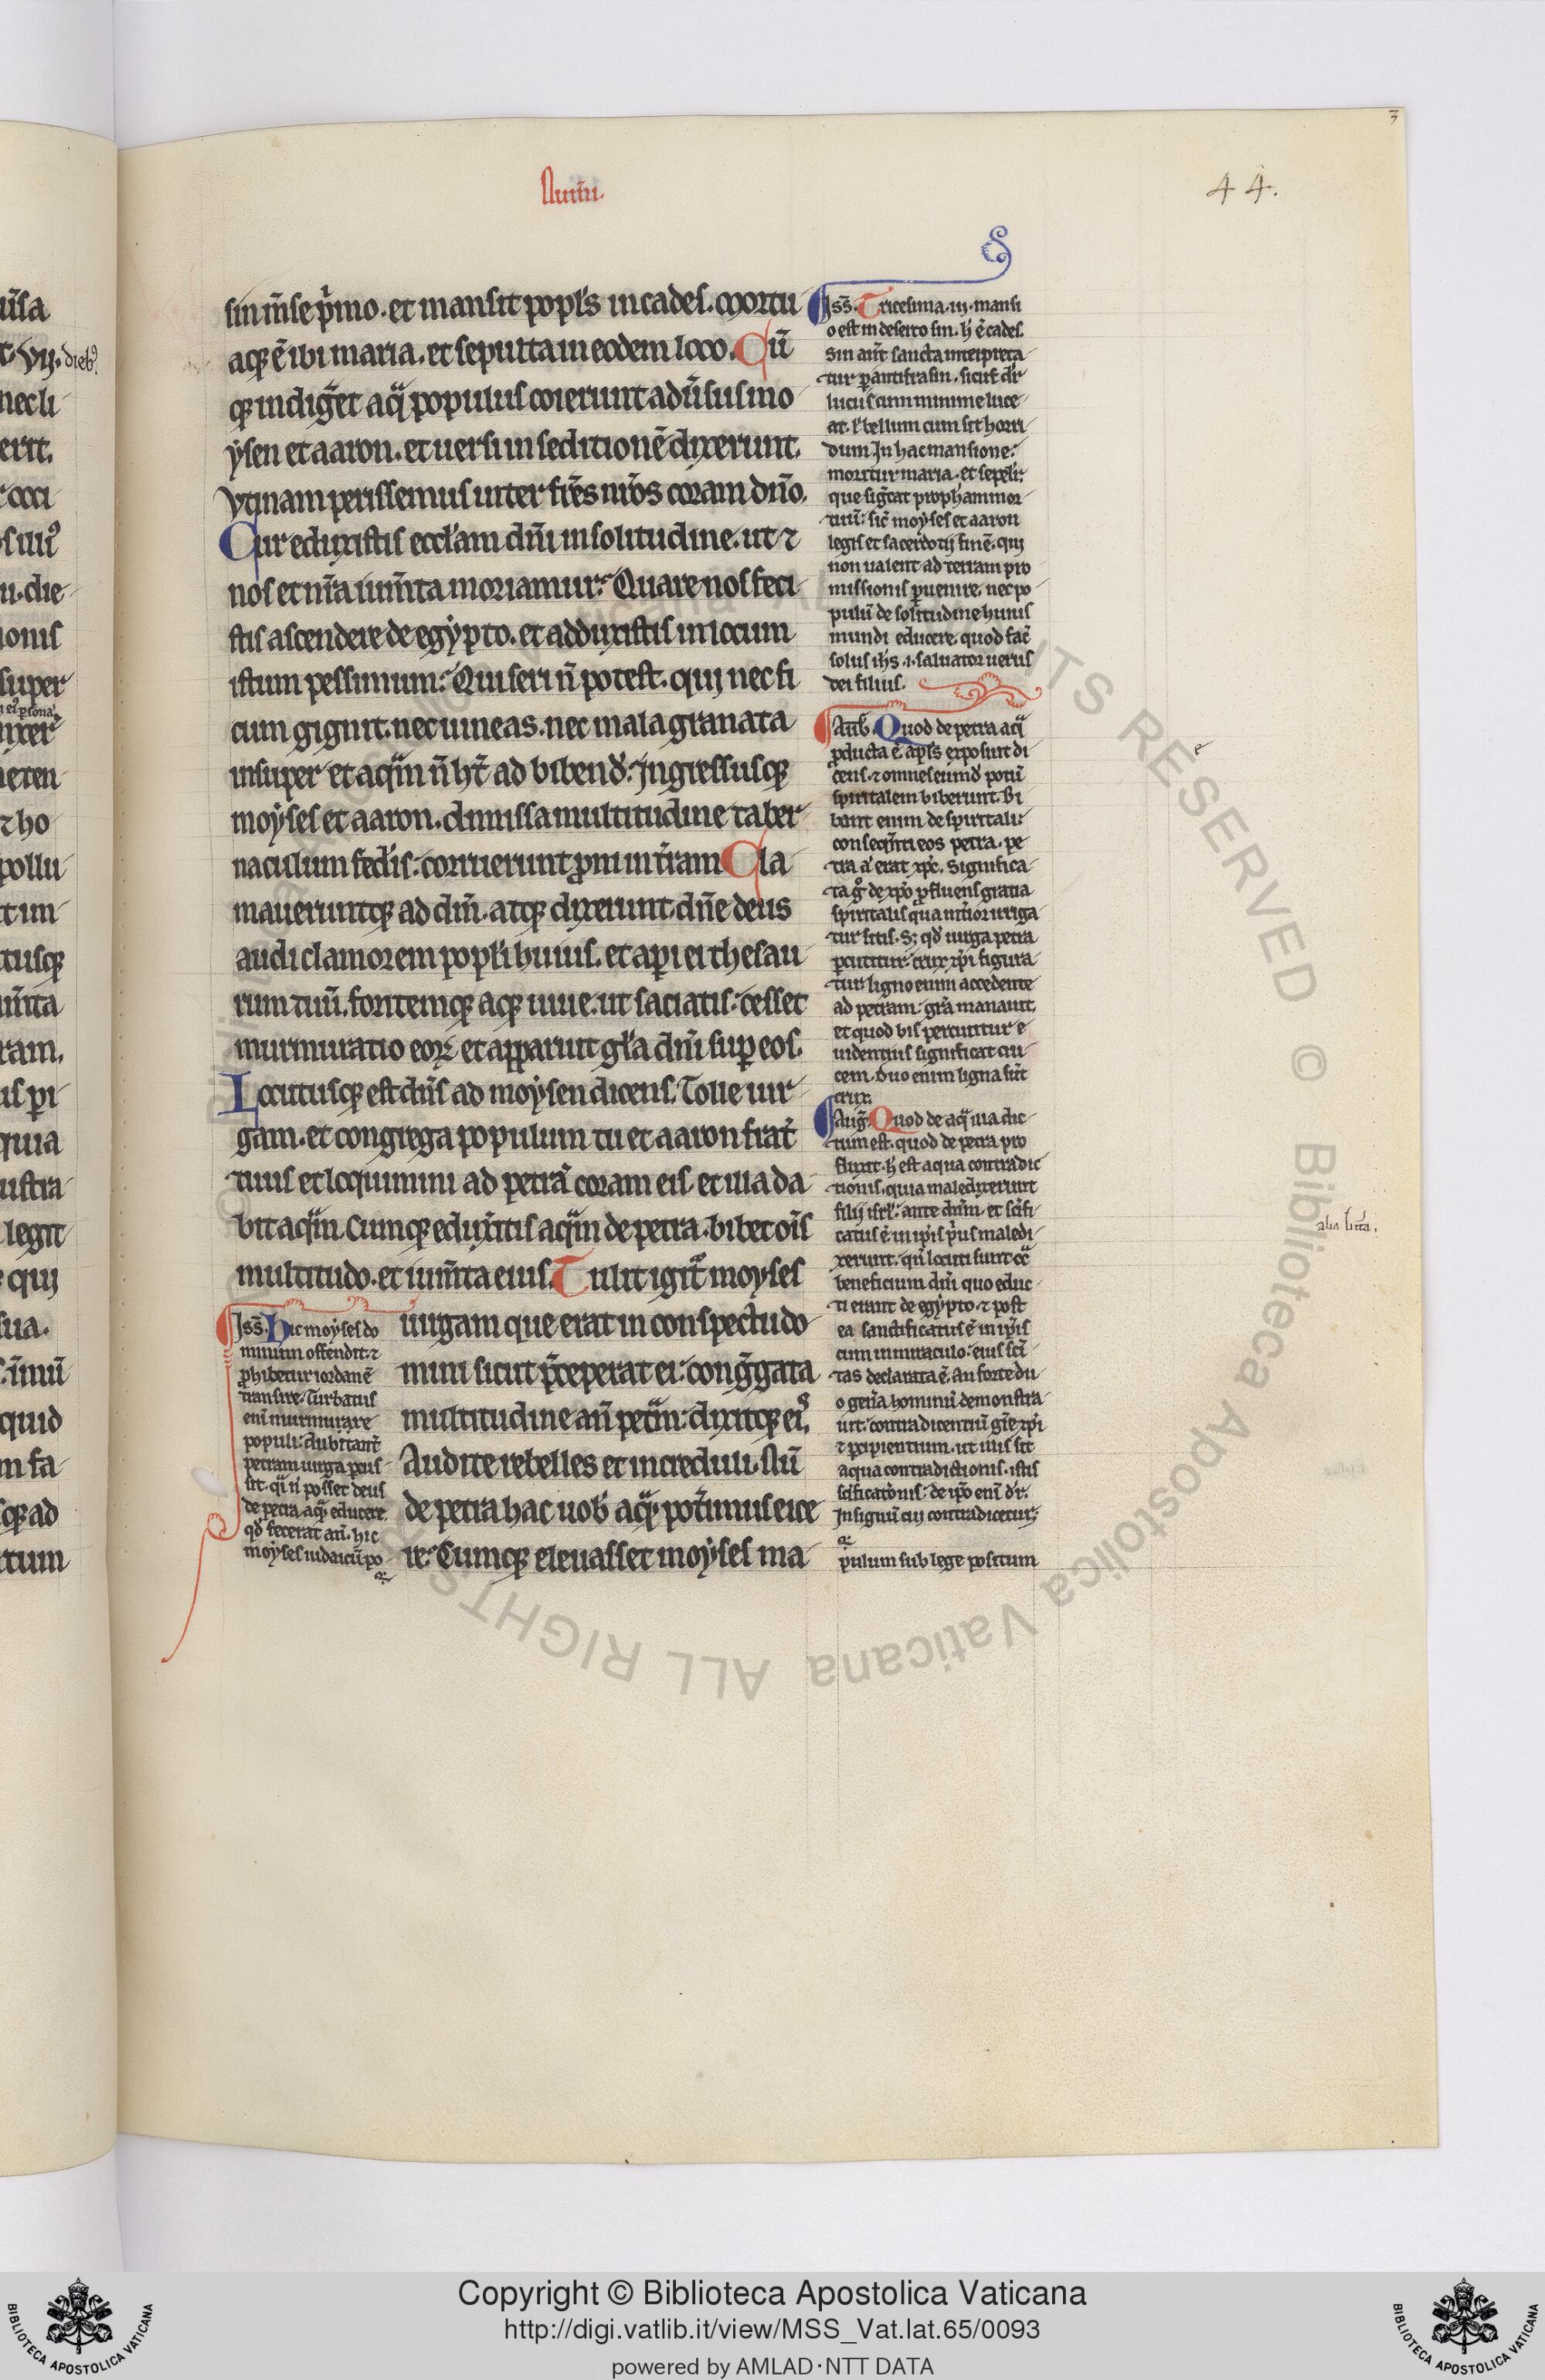 3
44.
Num̄i.
sin m̄se p̄mo. et mansit popl's in cades. Mortu
aq̄ ē ibi maria. et sepulta in eodem loco. Cū
q̄ indiḡet aq̄ populus coierunt adūsus mo
ysen et aaron. et uersi in seditionē dixerunt.
Vtinam perissemus inter fr̄es nr̄os coram dn̄o.
Cur eduxistis eccl'am dn̄i in solitudine. ut ⁊
nos et nr̄a ium̄ta moriamur? Quare nos feci
stis ascendere de egypto. et adduxistis in locum
istum pessimum? Qui seri n̄ potest. qui nec fi
cum gignit. nec uineas. nec mala granata
insuper et aq̄m n̄ ht̄ ad bibend'. Ingressusq̄
moyses et aaron. dimissa multitudine taber
naculum fed'is: corruerunt p̄ni in t̄ram Cla
maueruntq̄ ad dn̄m. atq̄ dixerunt. dn̄e deus
audi clamorem popl'i huius. et api ei thesau
rum tuū. fontemq̄ aq̄ uiue. ut saciatis: cesset
murmuratio eoꝝ et apparuit gl'a dn̄i sup eos.
Locutusq̄ est dn̄s ad moysen dicens. Tolle uir
gam. et congrega populum tu et aaron frat̄
tuus et loquimini ad petrā coram eis. et illa da
bit aq̄m. Cumq̄ eduxitis aq̄m de petra. bibet oīs
multitudo. et ium̄ta eius. Tulit igit̄ moyses
uirgam que erat in conspectu do
mini sicut p̄ceperat ei: cong̃gata
multitudine an̄ pet̄m: dixitq̄ eis.
Audite rebelles et increduli. Nū
de petra hac uob' aq̄ pot̄imus eice
re? Cumq̄ eleuasset moyses ma
Iss̄. Hic moyses do
minum offendit: ⁊
phibetur iordanē
transire. Turbatus
enī murmurare
populi: dubitant̄
petram uirga pcus
sit. q̄i n̄ posset deus
de petra aq̄ educere.
qd' fecerat an̄. hic
moyses iudaicū po
Iss̄. Tricesima. iij. mansi
o est in deserto sin. h' ē cades.
Sin aut̄ sancta interpreta
tur p antifrasin. sicut dr̄
lucus cum minime luce
at. l' bellum cum sit horri
dum In hac mansione:
moritur maria. et sepelit̄
que sig̃cat proph'am mor
tuū: sic̄ moyses et aaron
legis et sacerdotij finē. qui
non ualent ad terram pro
missionis puenire. nec po
pulū de solitudine huius
mundi educere. quod fac̄
solus ih̄s .i. saluator uerus
dei filius.
Amb'. Quod de petra aq̄
pducta ē apl's exposuit di
cens. ⁊ omnes eund' potū
spiritalem biberunt. Bi
bant enim de spiritali:
conseq̄nti eos petra. pe
tra a' erat xp̄c. Significa
ta g° de xp̄o pfluens gratia
spiritalis qua int̄ior irriga
tur sitis. S; qd' uirga petra
pcutitur: crux xp̄i figura
tur: ligno enim accedente
ad petram: gr̄a manauit.
et quod bis percutitur e
uidentius significat cru
cem. Duo enim ligna sūt
crux.
Aug̃. Quod de aq̄ illa dic
tum est. quod de petra pro
fluxit. h' est aqua contradic
tionis. quia maledixerunt
filij isrl': ante dn̄m. et sc̄ifi
catus ē in ip̄is p̄us maledi
xerunt. q̄n locuti sunt cōt
beneficium dn̄i quo educ
ti erant de egypto. ⁊ post
ea sanctificatus ē in ip̄is
cum in miraculo: eius sc̄i
tas declarata ē. An forte du
o gen̄a hominū demonstra
uit: contradicentiū gr̄e xp̄i
⁊ pcipientium. ut illis sit
aqua contradictionis. istis
sc̄ificatōnis: de ip̄o enī dr̄.
In signū cui contradicetur;
pulum sub lege positum
alia litt̄a.
Copyright © Biblioteca Apostolica Vaticana
http://digi.vatlib.it/view/MSS_Vat.lat.65/0093
powered by AMLAD·NTT DATA
BIBLIOTECA APOSTOLICA VATICANA
BIBLIOTECA APOSTOLICA VATICANA